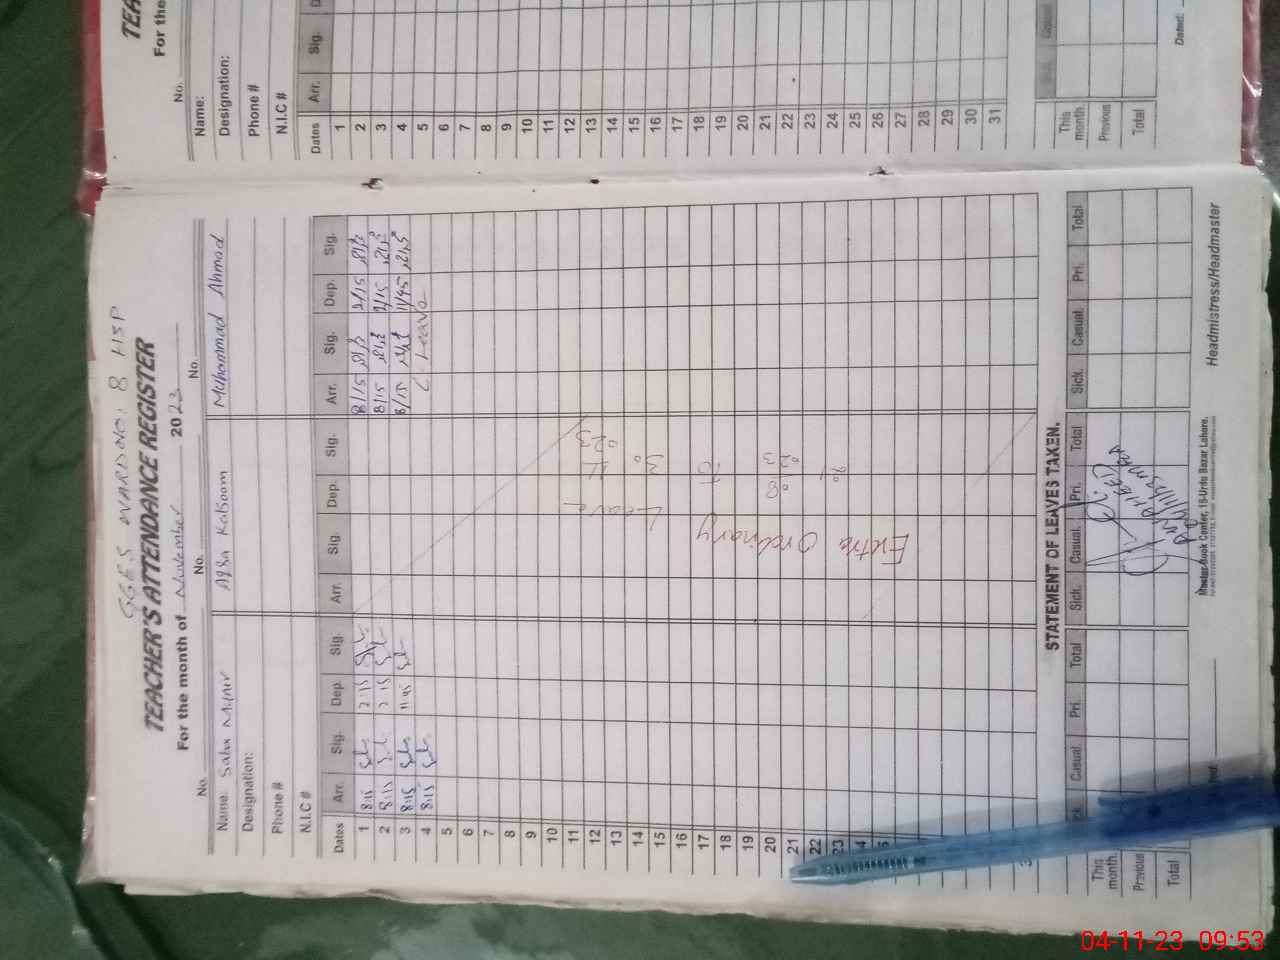 TEACHER'S ATTENDANCE REGISTER
For the month of November 2023
No. No. No.
Name: Saba Munir Aqsa Kalsoom Muhammad Ahmad
Designation:
Phone #
N.I.C #
Dates Arr. Sig. Dep. Sig. Arr. Sig. Dep. Sig. Arr. Sig. Dep. Sig.
1 8:15 2:15 8/15 2/15
2 8:15 2:15 8/15 2/15
3 8:15 11:45 8/15 11/45
4 8:15 Leave
5
6
7
8
9
10
11
12
13
14
15
16
17
18
19
20
21
22
23
Extra Ordinary Leave
STATEMENT OF LEAVES TAKEN.
Casual. Pri. Total Sick. Casual. Pri. Total Sick. Casual Pri. Total
This month.
Previous
Total
Master Book Center, 15-Urdu Bazar Lahore.
Headmistress/Headmaster
TEA
For the
No.
Name:
Designation:
Phone #
N.I.C #
Dates Arr. Sig.
1
2
3
4
5
6
7
8
9
10
11
12
13
14
15
16
17
18
19
20
21
22
23
24
25
26
27
28
29
30
31
This month.
Previous
Total
Dated:
04-11-23 09:53